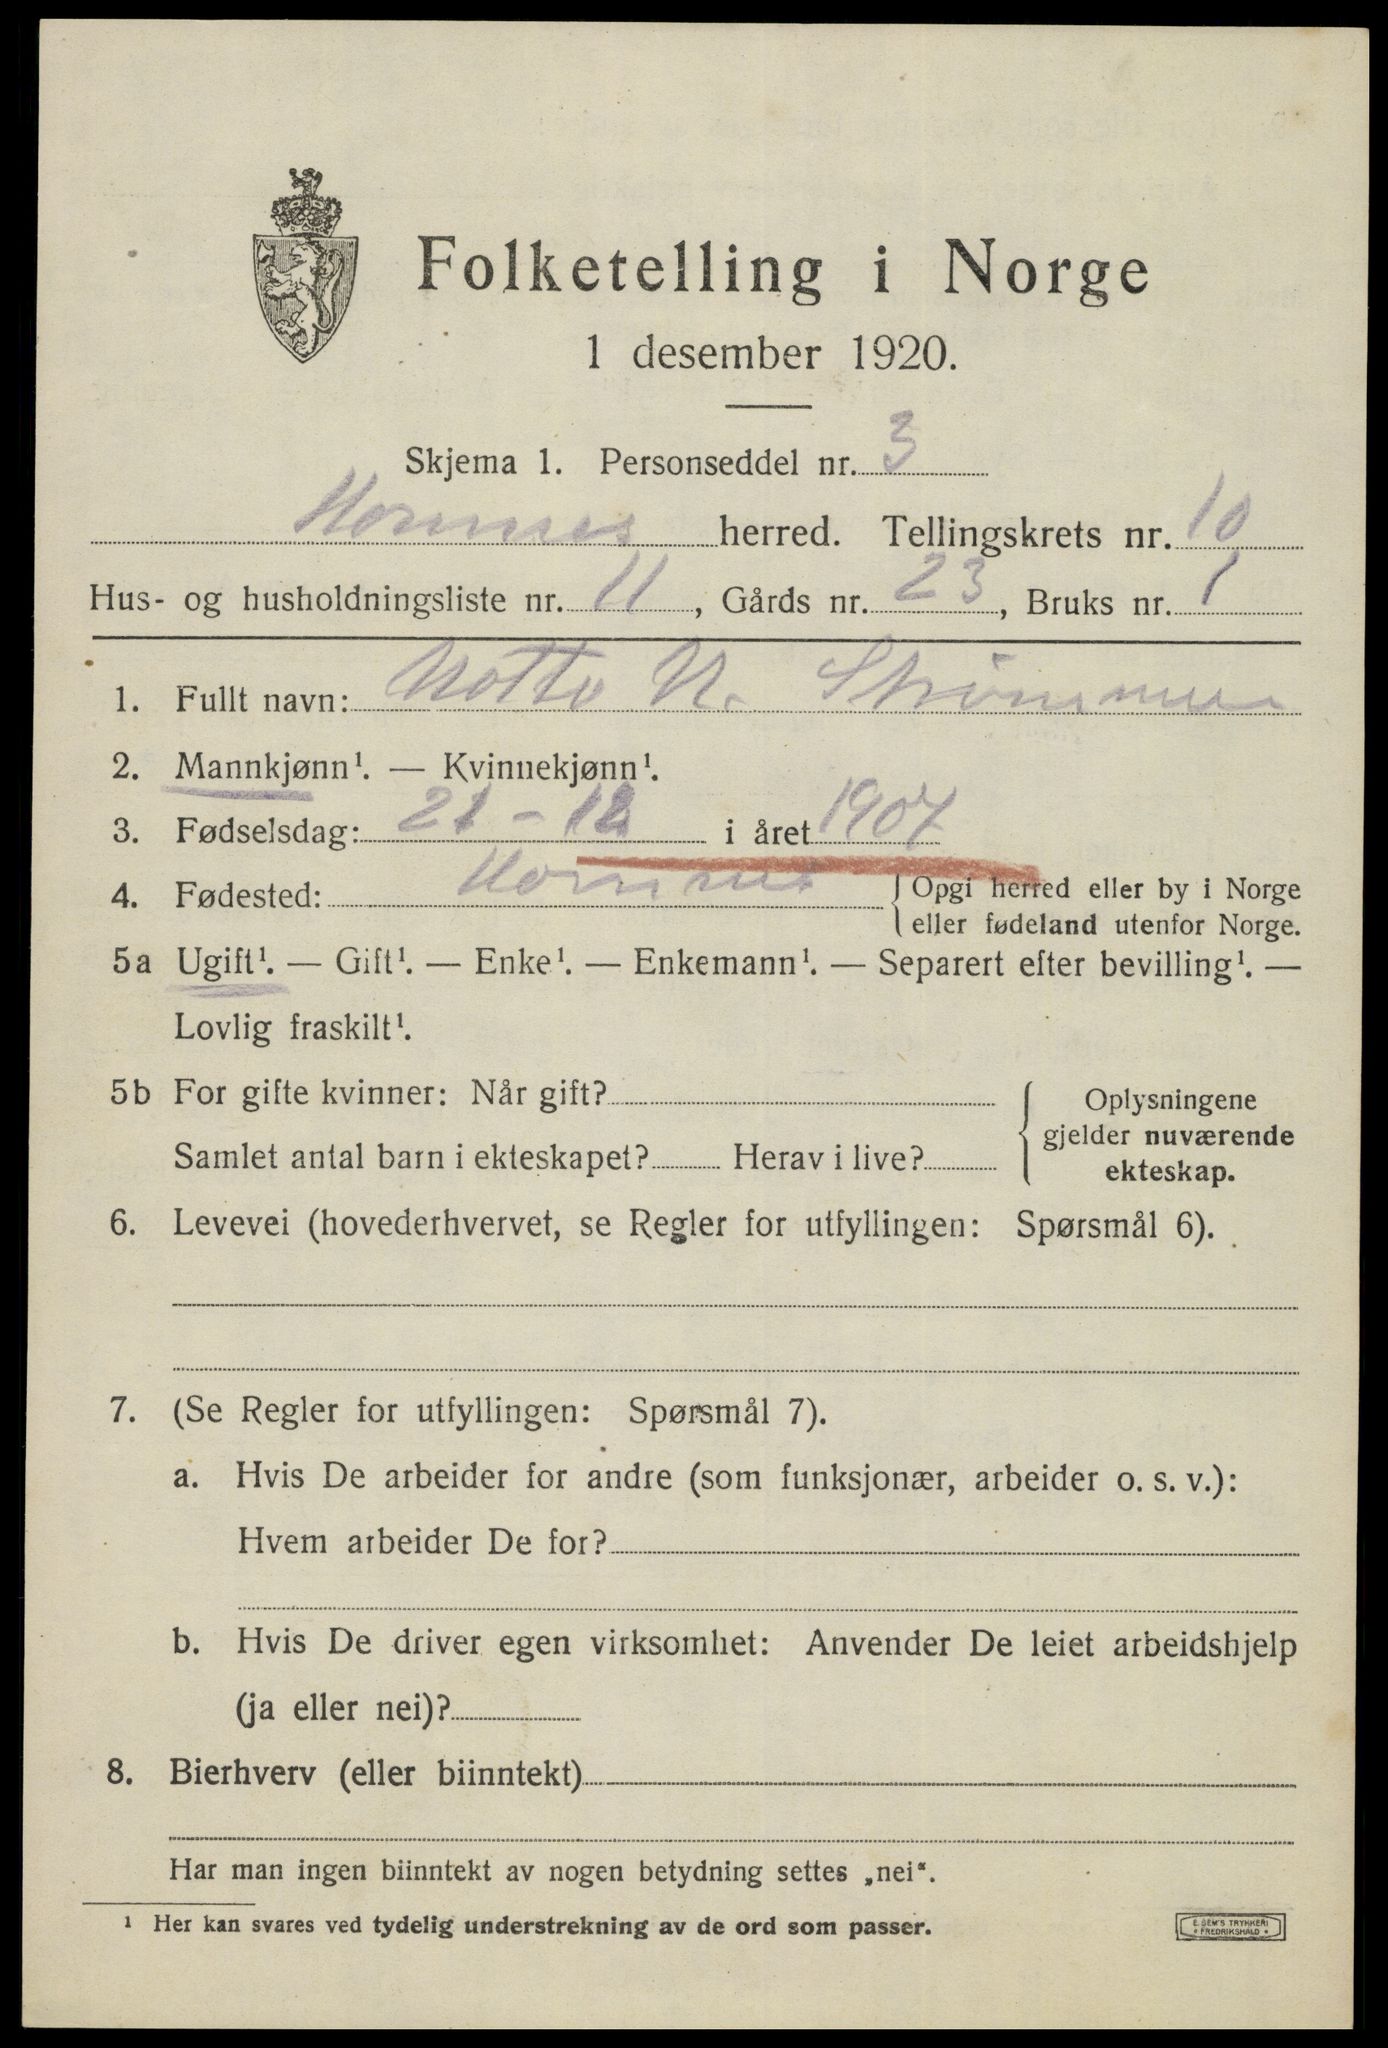 Folketelling i Norge
1 desember 1920.
Skjema 1. Personseddel nr. 3
Hornnes herred. Tellingskrets nr. 10
Hus- og husholdningsliste nr. 11, Gårds nr. 23, Bruks nr. 1
1. Fullt navn: Notto N.
2. Mannkjønn¹. — Kvinnekjønn¹.
3. Fødselsdag: 21 - 12 i året 1907
4. Fødested: Hornnes { Opgi herred eller by i Norge
eller fødeland utenfor Norge.
5a Ugift¹. — Gift¹. — Enke¹. — Enkemann¹. — Separert efter bevilling¹. —
Lovlig fraskilt¹.
5b For gifte kvinner: Når gift?
Samlet antal barn i ekteskapet? Herav i live?
{ Oplysningene
gjelder nuværende
ekteskap.
6. Levevei (hovederhvervet, se Regler for utfyllingen: Spørsmål 6).
7. (Se Regler for utfyllingen: Spørsmål 7).
a. Hvis De arbeider for andre (som funksjonær, arbeider o. s. v.):
Hvem arbeider De for?
b. Hvis De driver egen virksomhet: Anvender De leiet arbeidshjelp
(ja eller nei)?
8. Bierhverv (eller biinntekt)
Har man ingen biinntekt av nogen betydning settes „nei“.
¹ Her kan svares ved tydelig understrekning av de ord som passer.
E. SEM'S TRYKKERI
• FREDRIKSHALD •